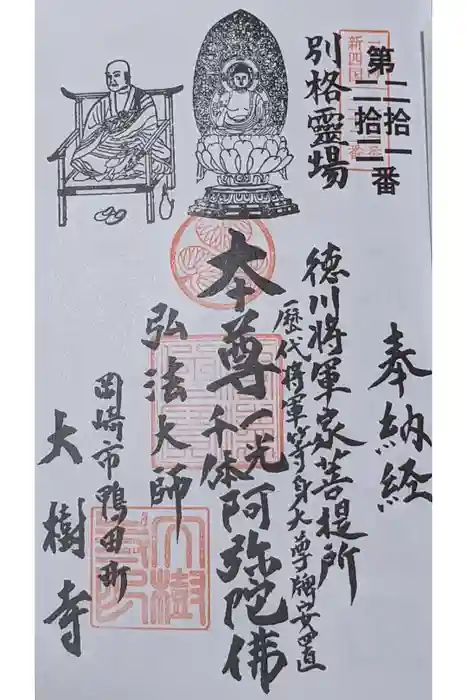 第二拾一番
二拾二
別格霊場
奉納経
徳川将軍家菩提所
歴代将軍等身大尊牌安置
本尊一光千体阿弥陀佛
弘法大師
岡崎市鴨田町
大樹寺